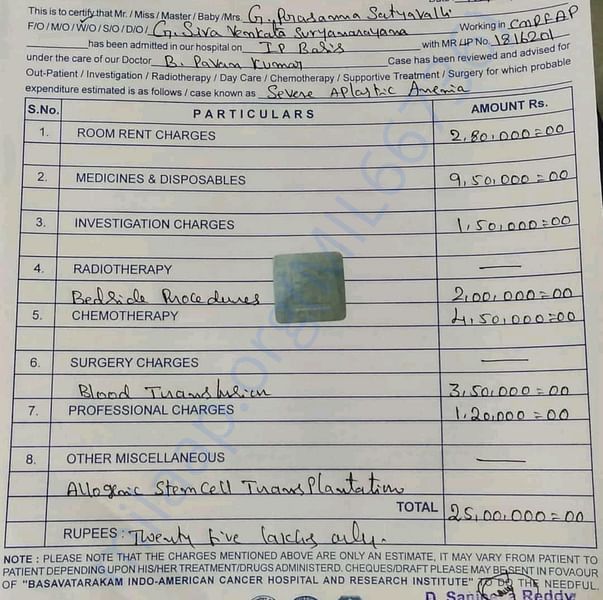 This is to certify that Mr. / Miss / Master / Baby /Mrs. G. Prasanna Satyavalli
F/O / M/O / W/O / S/O / D/O / G. Siva Venkata Suryanarayana Working in CMPF AP
has been admitted in our hospital on IP Basis with MR /IP No. 1816201
under the care of our Doctor B. Pavan Kumar Case has been reviewed and advised for
Out-Patient / Investigation / Radiotherapy / Day Care / Chemotherapy / Supportive Treatment / Surgery for which probable
expenditure estimated is as follows / case known as Severe Aplastic Anemia
S.No. PARTICULARS AMOUNT Rs.
1. ROOM RENT CHARGES 2,80,000=00
2. MEDICINES & DISPOSABLES 9,50,000=00
3. INVESTIGATION CHARGES 1,50,000=00
4. RADIOTHERAPY —
Bedside Procedures 2,00,000=00
5. CHEMOTHERAPY 4,50,000=00
6. SURGERY CHARGES —
Blood Transfusion 3,50,000=00
7. PROFESSIONAL CHARGES 1,20,000=00
8. OTHER MISCELLANEOUS —
Allogenic StemCell TransPlantation
TOTAL 25,00,000=00
RUPEES : Twenty five lakhs only.
NOTE : PLEASE NOTE THAT THE CHARGES MENTIONED ABOVE ARE ONLY AN ESTIMATE, IT MAY VARY FROM PATIENT TO
PATIENT DEPENDING UPON HIS/HER TREATMENT/DRUGS ADMINISTERD. CHEQUES/DRAFT PLEASE MAY BE SENT IN FOVAOUR
OF "BASAVATARAKAM INDO-AMERICAN CANCER HOSPITAL AND RESEARCH INSTITUTE" TO DO THE NEEDFUL.
D. Reddy